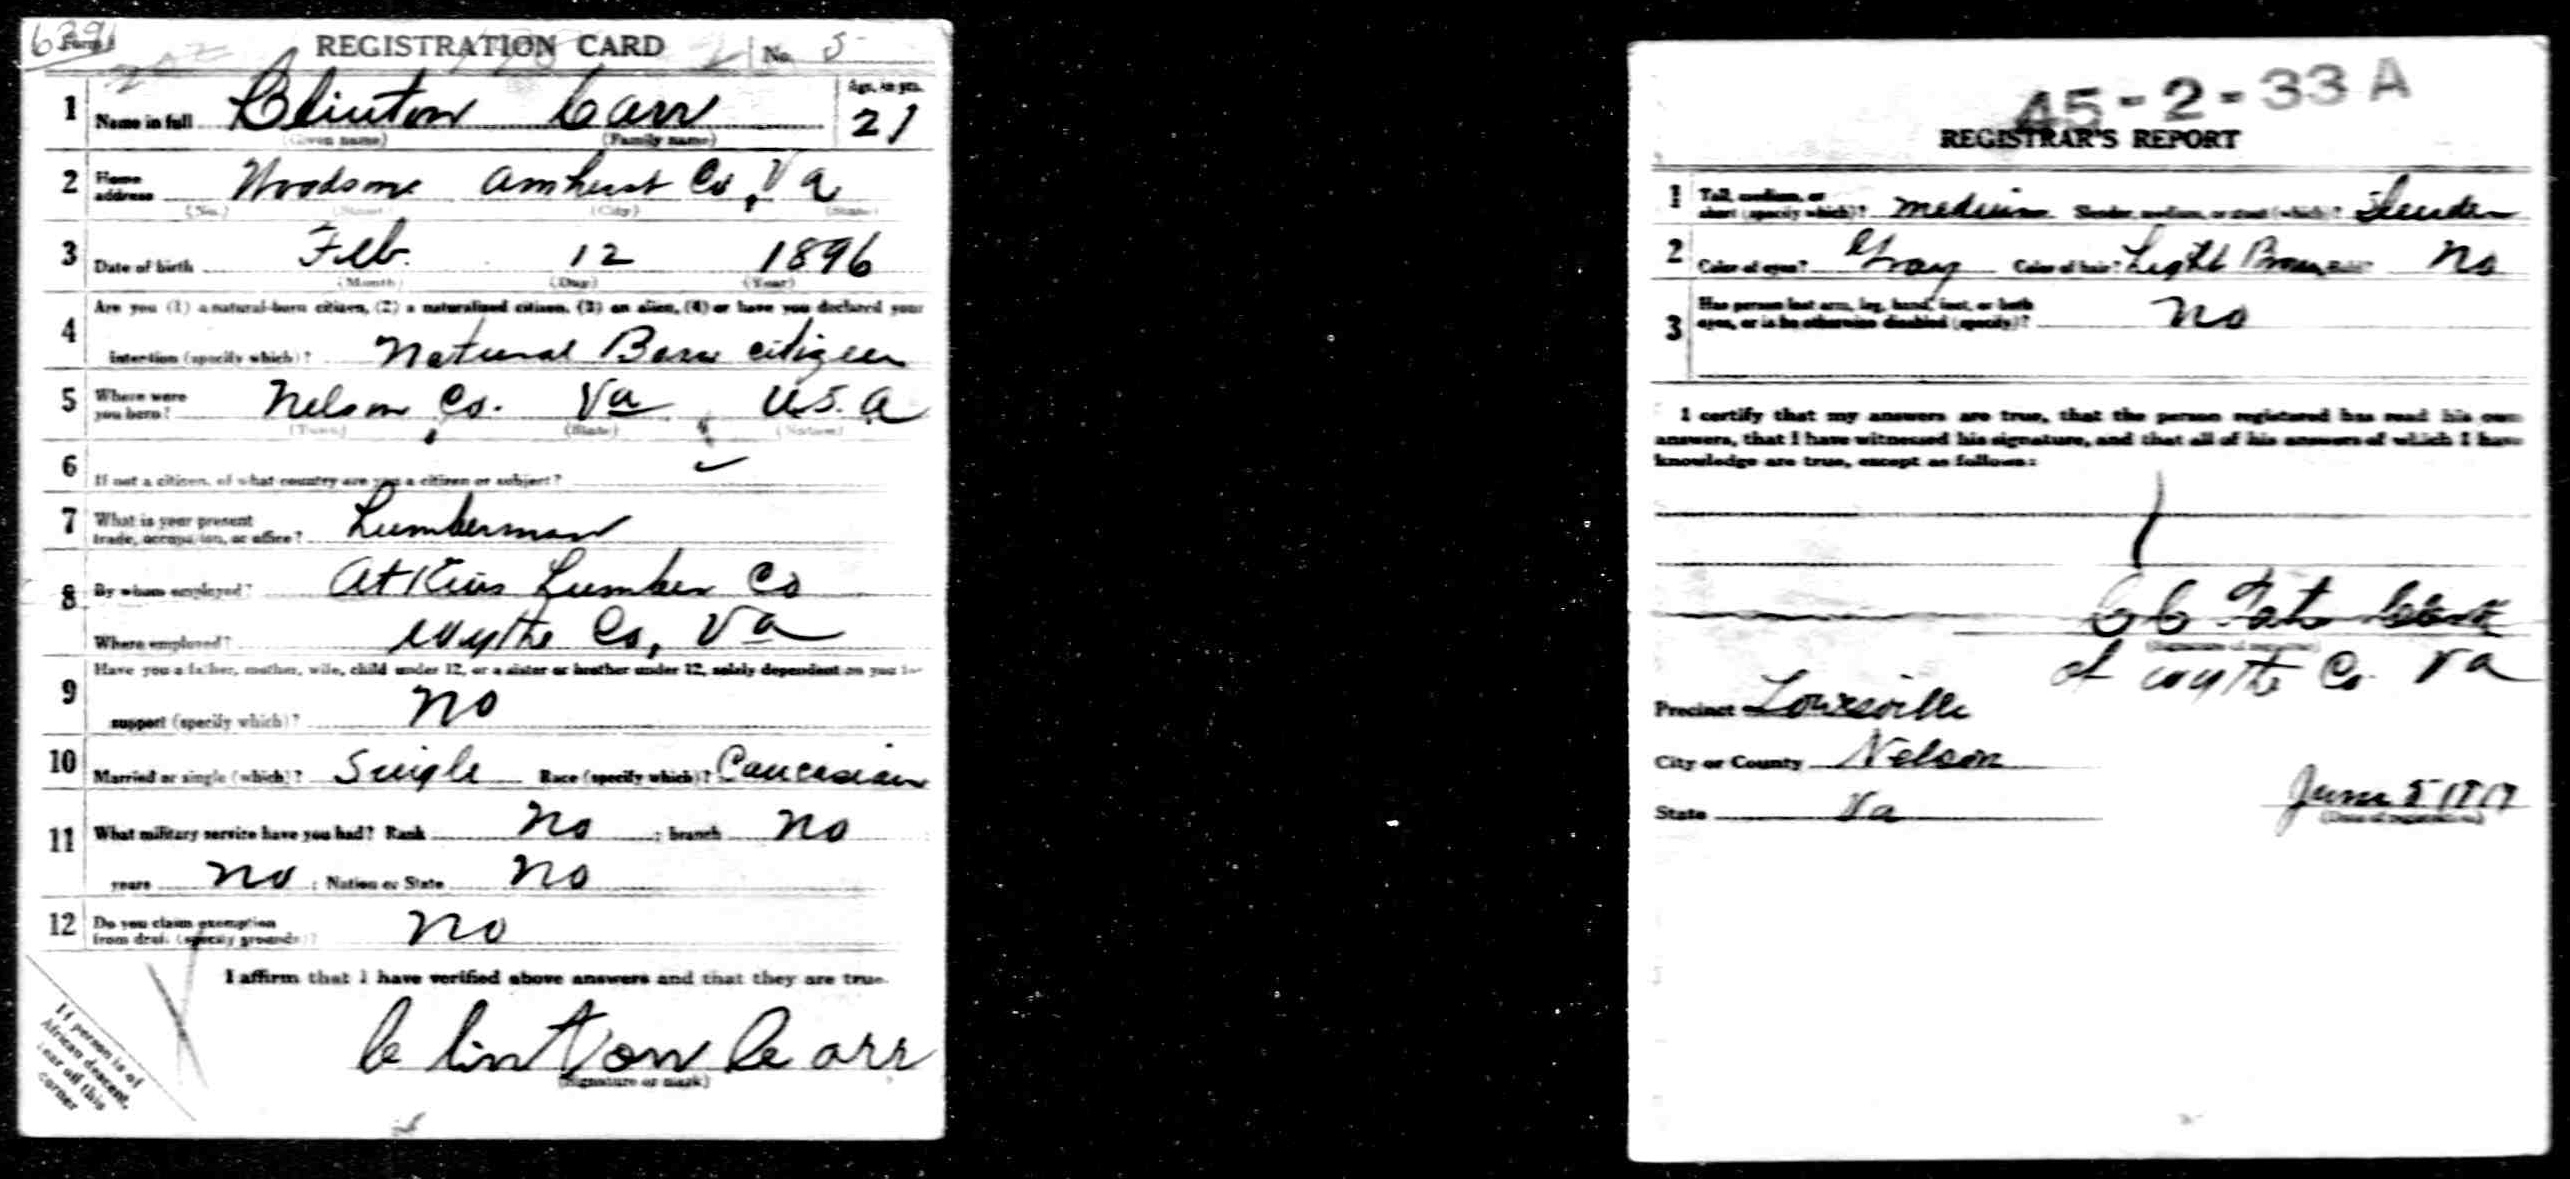 6391 Form 1 REGISTRATION CARD No. 5
1 Name in full Clinton Carr Age, in yrs. 21
(Given name) (Family name)
2 Home address Woodson Amherst Co, Va
(No.) (Street) (City) (State)
3 Date of birth Feb. 12 1896
(Month) (Day) (Year)
4 Are you (1) a natural-born citizen, (2) a naturalized citizen, (3) an alien, (4) or have you declared your
intention (specify which)? Natural Born citizen
5 Where were you born? Nelson Co. Va U.S.A
(Town) (State) (Nation)
6 If not a citizen, of what country are you a citizen or subject?
7 What is your present trade, occupation, or office? Lumberman
8 By whom employed? Atkins Lumber Co
Where employed? Wythe Co, Va
9 Have you a father, mother, wife, child under 12, or a sister or brother under 12, solely dependent on you for
support (specify which)? No
10 Married or single (which)? Single Race (specify which)? Caucasian
11 What military service have you had? Rank No ; branch No
years No ; Nation or State No
12 Do you claim exemption from draft (specify grounds)? No
I affirm that I have verified above answers and that they are true.
Clinton Carr
(Signature or mark)
If person is of
African descent,
tear off this
corner
45-2-33 A
REGISTRAR'S REPORT
1 Tall, medium, or short (specify which)? medium Slender, medium, or stout (which)? Slender
2 Color of eyes? Gray Color of hair? Light Brown No
3 Has person lost arm, leg, hand, foot, or both
eyes, or is he otherwise disabled (specify)? No
I certify that my answers are true, that the person registered has read his own
answers, that I have witnessed his signature, and that all of his answers of which I have
knowledge are true, except as follows:
Clerk
(Signature of registrar)
of Wythe Co. Va
Precinct
City or County Nelson
State Va
June 5 1917
(Date of registration)